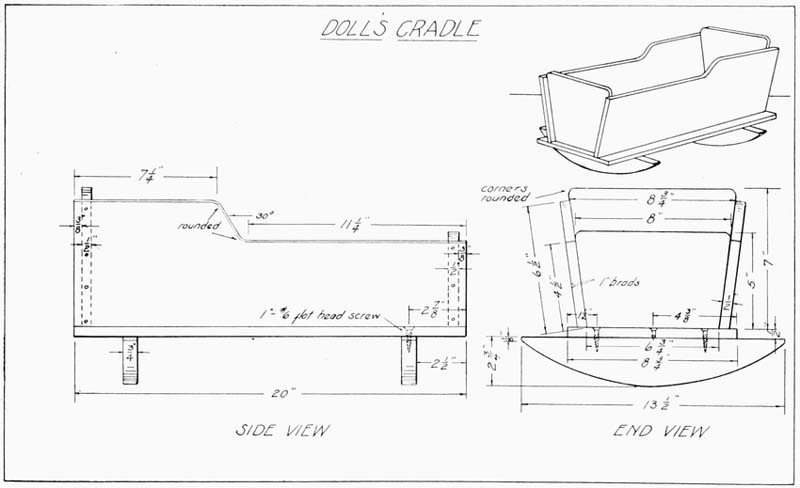 DOLL'S CRADLE
7 1/4"
rounded
30°
11 1/4"
1"-#6 flat head screw
2 7/8"
2 1/2"
20"
SIDE VIEW
corners
rounded
8 3/4"
8"
6 1/2"
4 1/2"
1" brads
5"
7"
4 3/8"
6 3/4"
8 3/4"
2 3/4"
13 1/2"
END VIEW